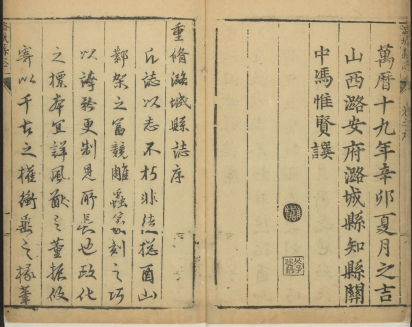 萬曆十九年辛卯夏月之吉
山西潞安府潞城縣知縣關
中馮惟賢譔
重脩潞城縣誌序
凡誌以志不朽非徒摠酉山
鄴架之富競雕蟲篆刻之巧
以誇於更制見所長也政化
之標本宜詳風猷之董振攸
寄以千古之權衡